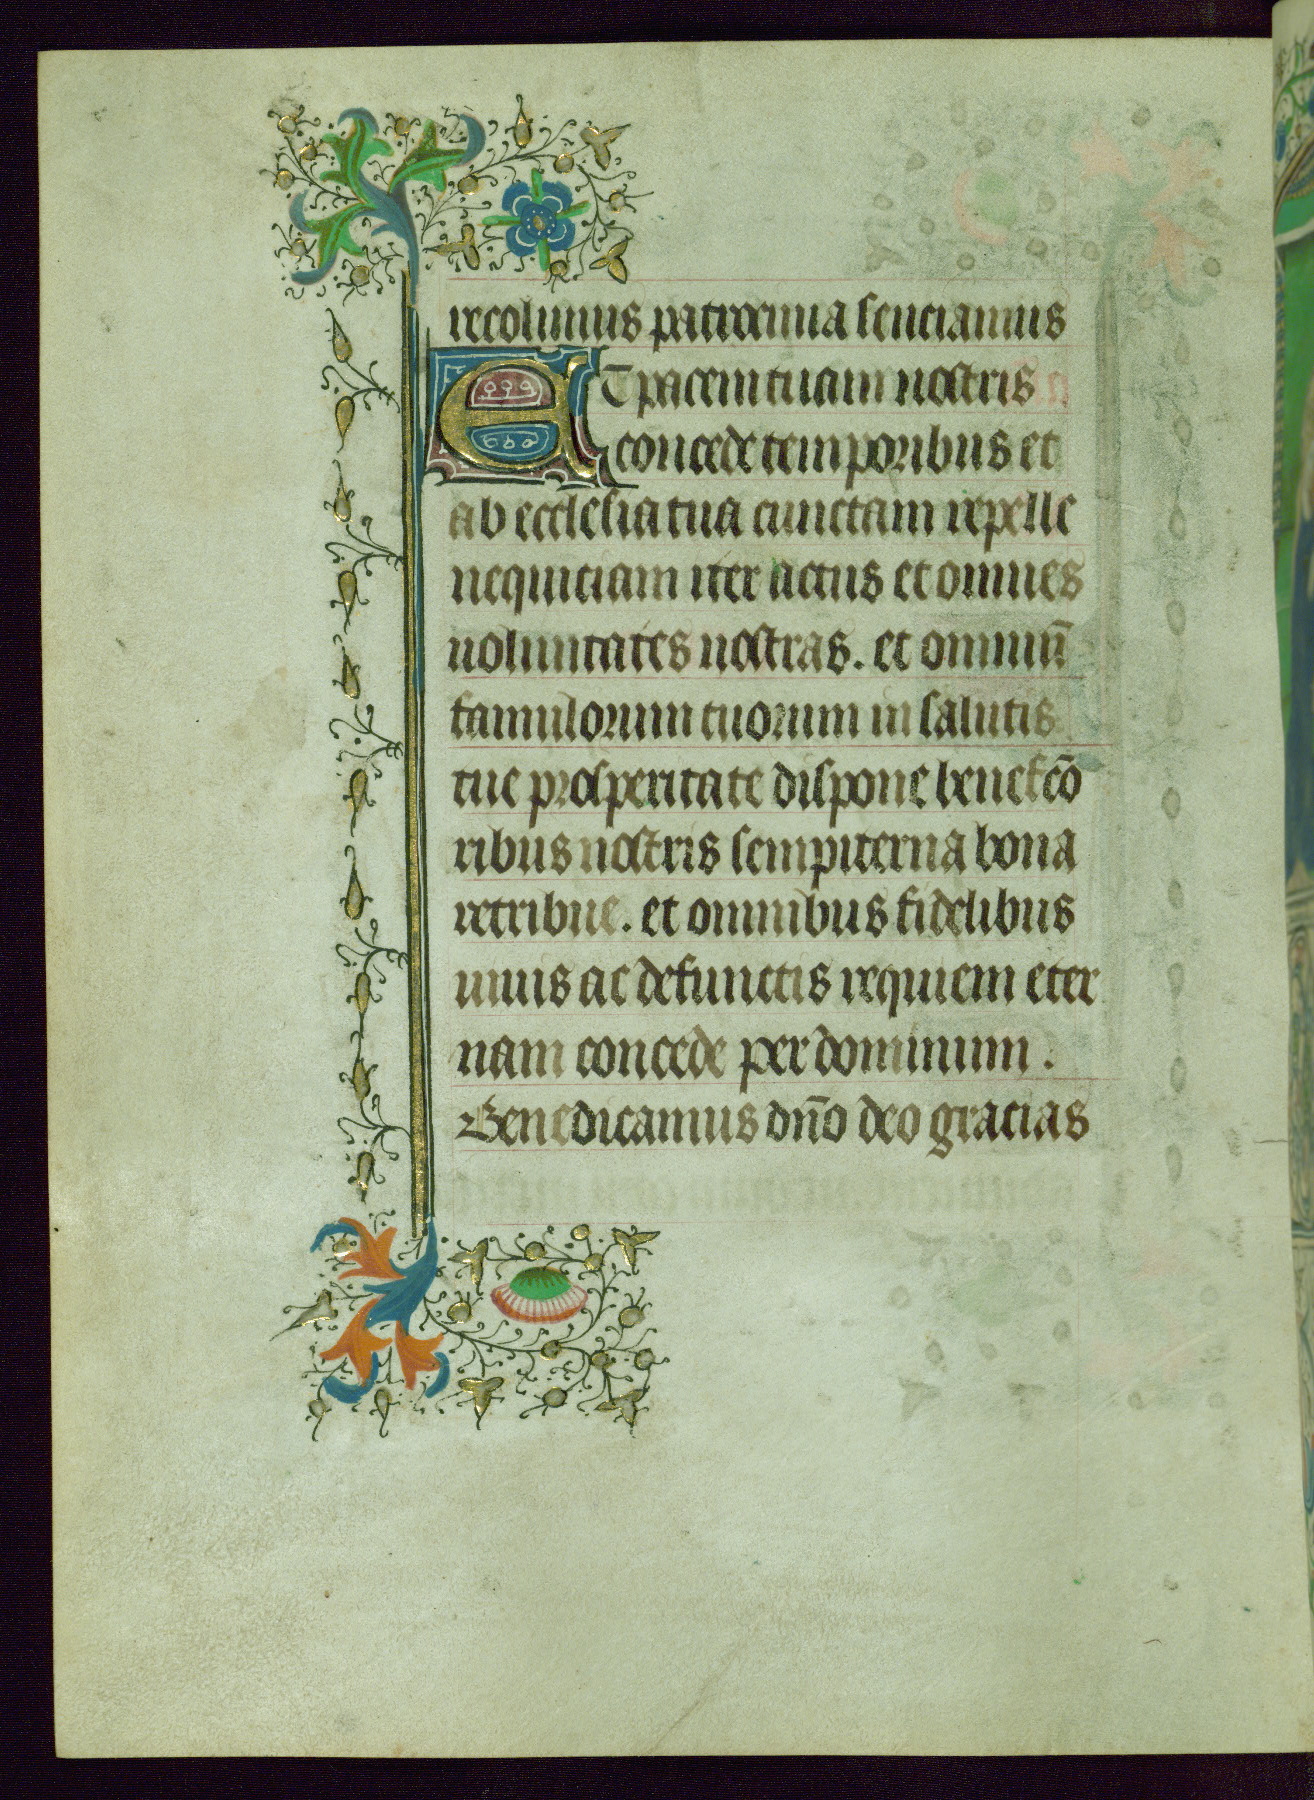 recolimus patrocinia senciamus
ET pacem tuam nostris
concede temporibus et
ab ecclesia tua cunctam repelle
nequiciam iter actus et omnes
uoluntates nostras. et omniū
famulorum tuorum in salutis
tue prosperitate dispone benefcō
ribus nostris sempiterna bona
retribue. et omnibus fidelibus
uiuis ac defunctis requiem eter
nam concede per dominum.
Benedicamus dn̄o deo gracias